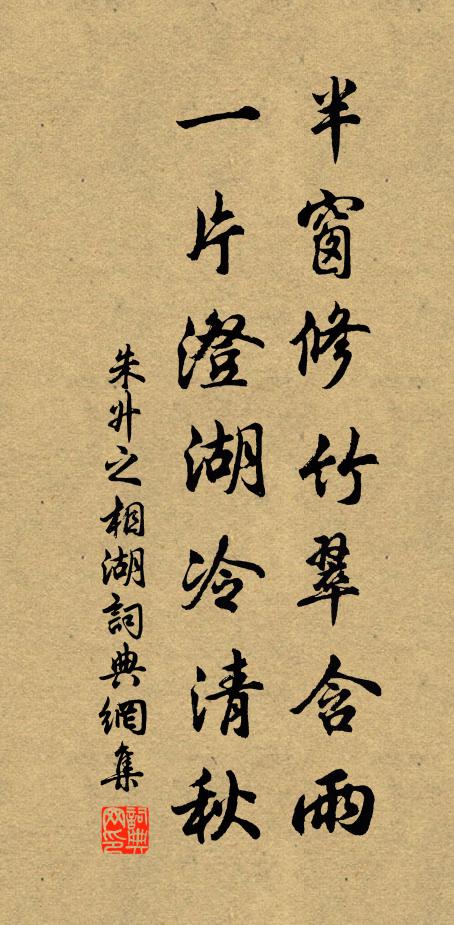 半窗修竹翠含雨
一片澄湖冷清秋
朱升之相湖詞典網集
詞典网印